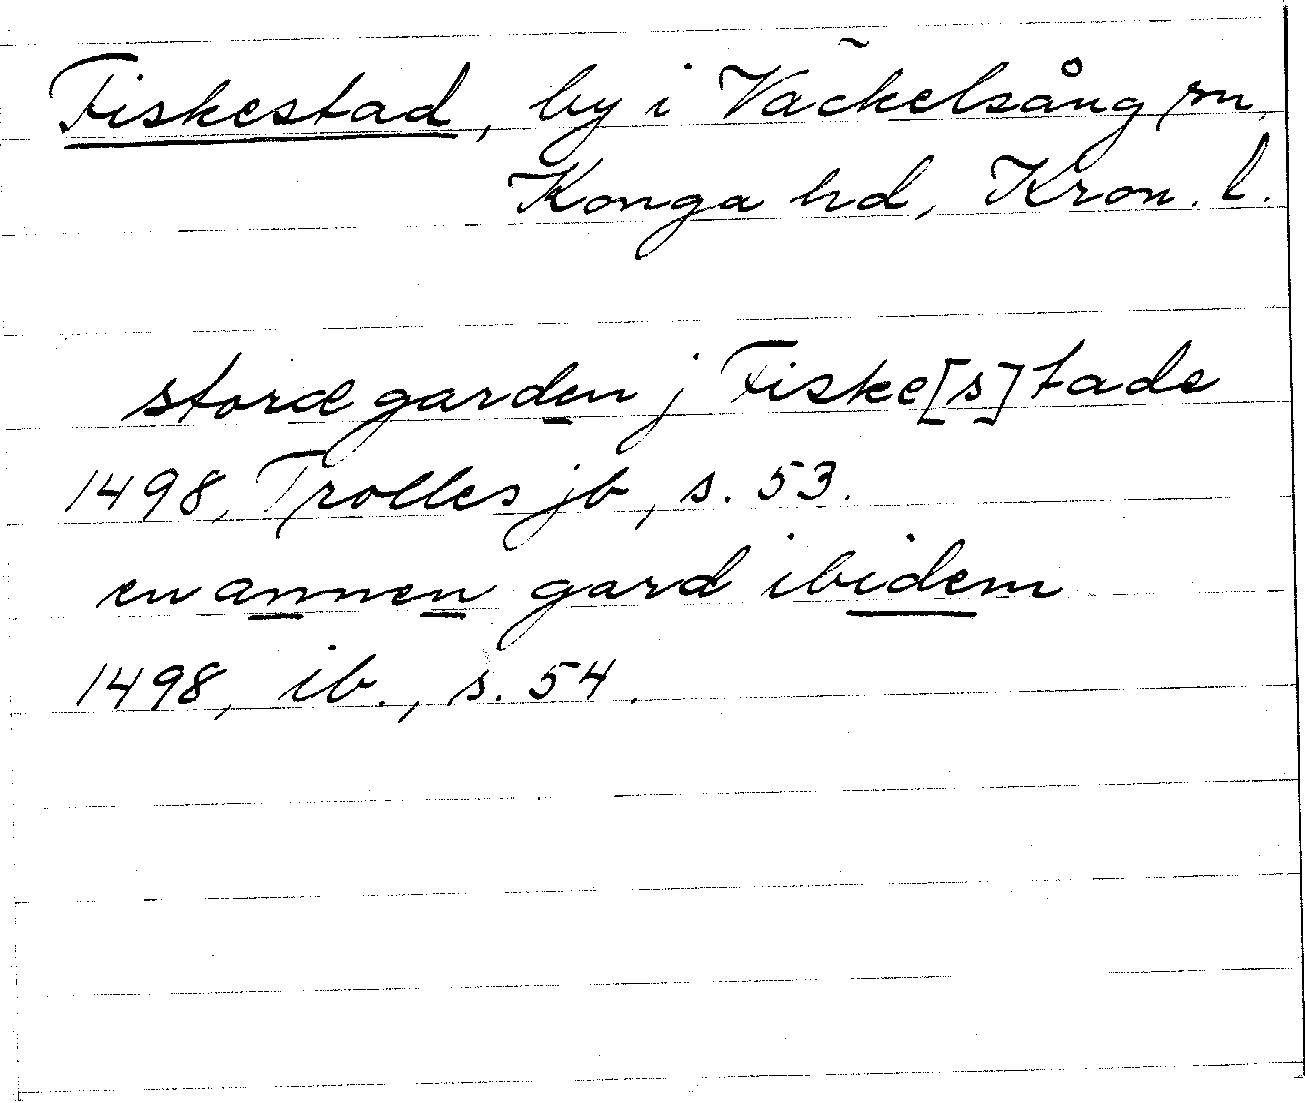 Fiskestad, by i Väckelsång sn,
Konga hd, Kron. l.
storægarden j Fiske[s]tade
1498, Trolles jb, s. 53.
en annen gard ibidem
1498, ib., s. 54.